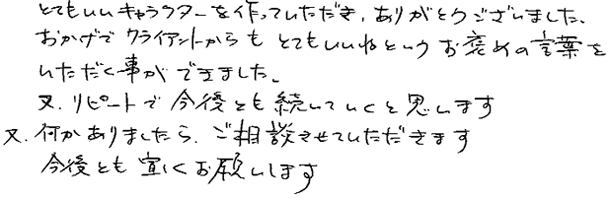 とてもいいキャラクターを作っていただき、ありがとうございました。
おかげで クライアントからも とてもいいねという お褒めの言葉を
いただく事ができました。
又、リピートで 今後とも 続いていくと思います
又、何かありましたら、ご相談させていただきます
今後とも 宜しくお願いします